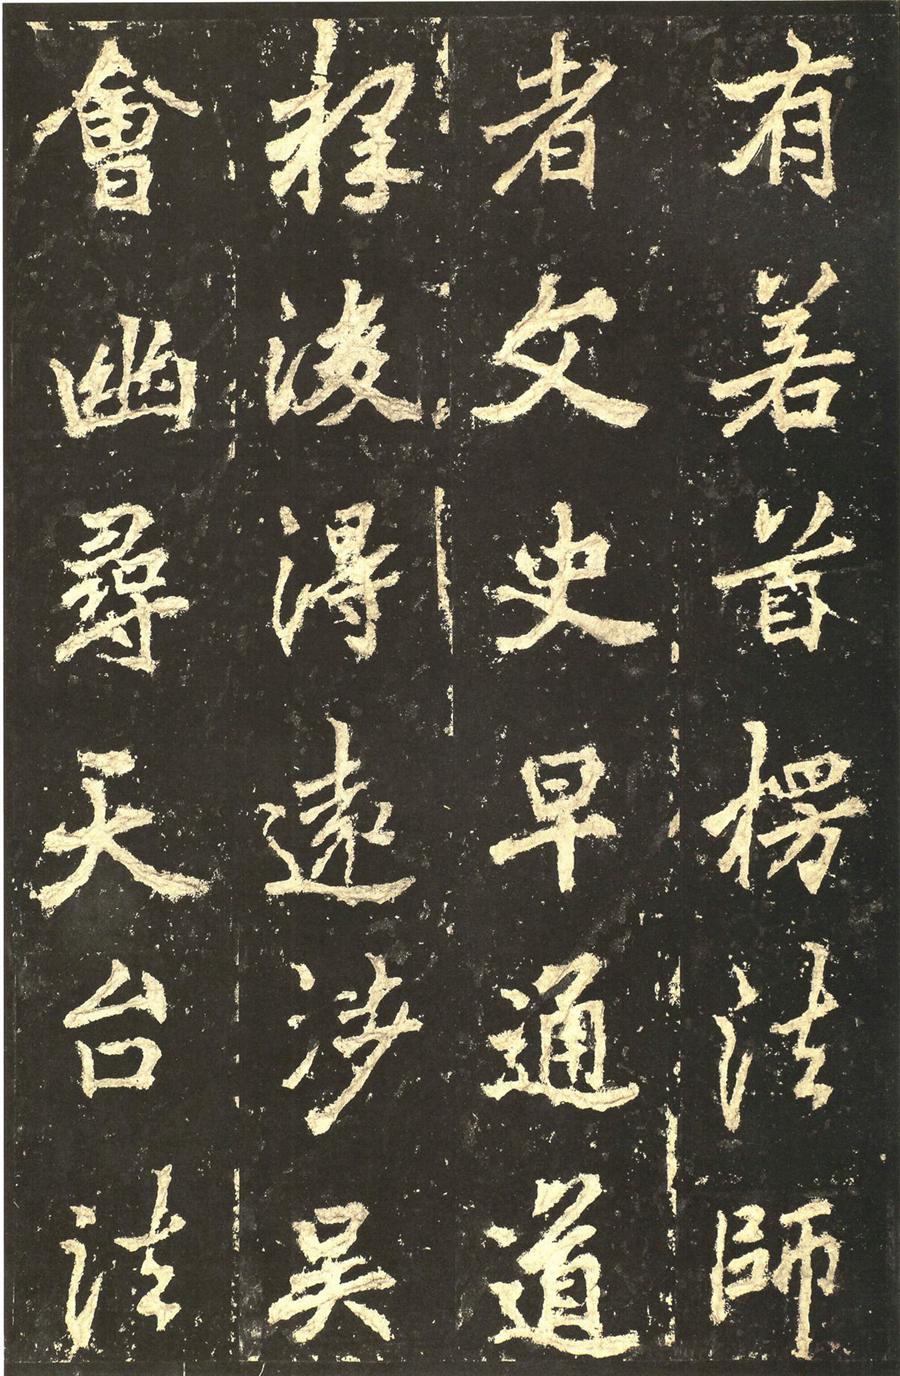 有若首楞法師
者文史早通道
釋後得遠涉吳
會幽尋天台法